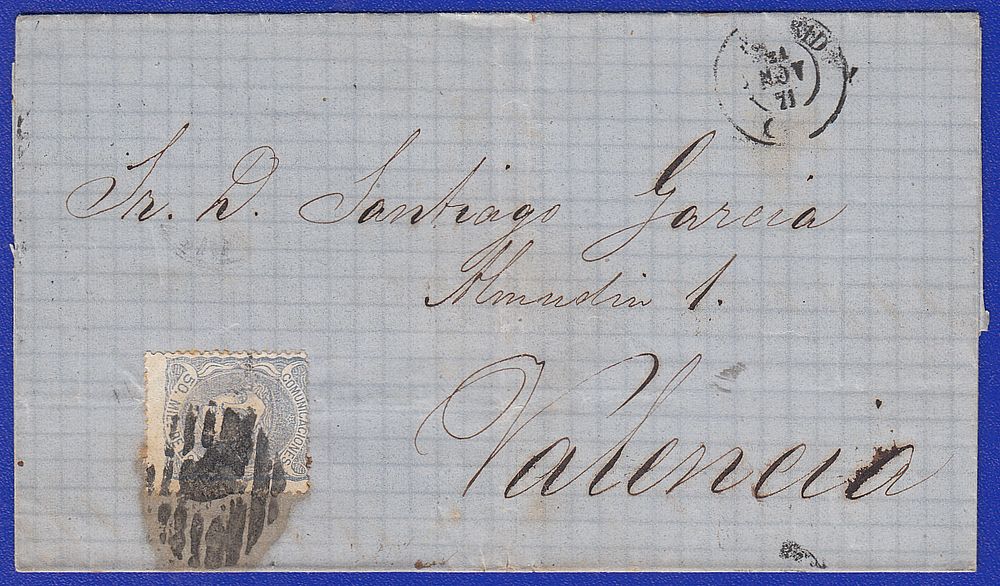 NOV
71
Sr. D. Santiago Garcia
Almudin 1.
Valencia
COMUNICACIONES
50 MIL